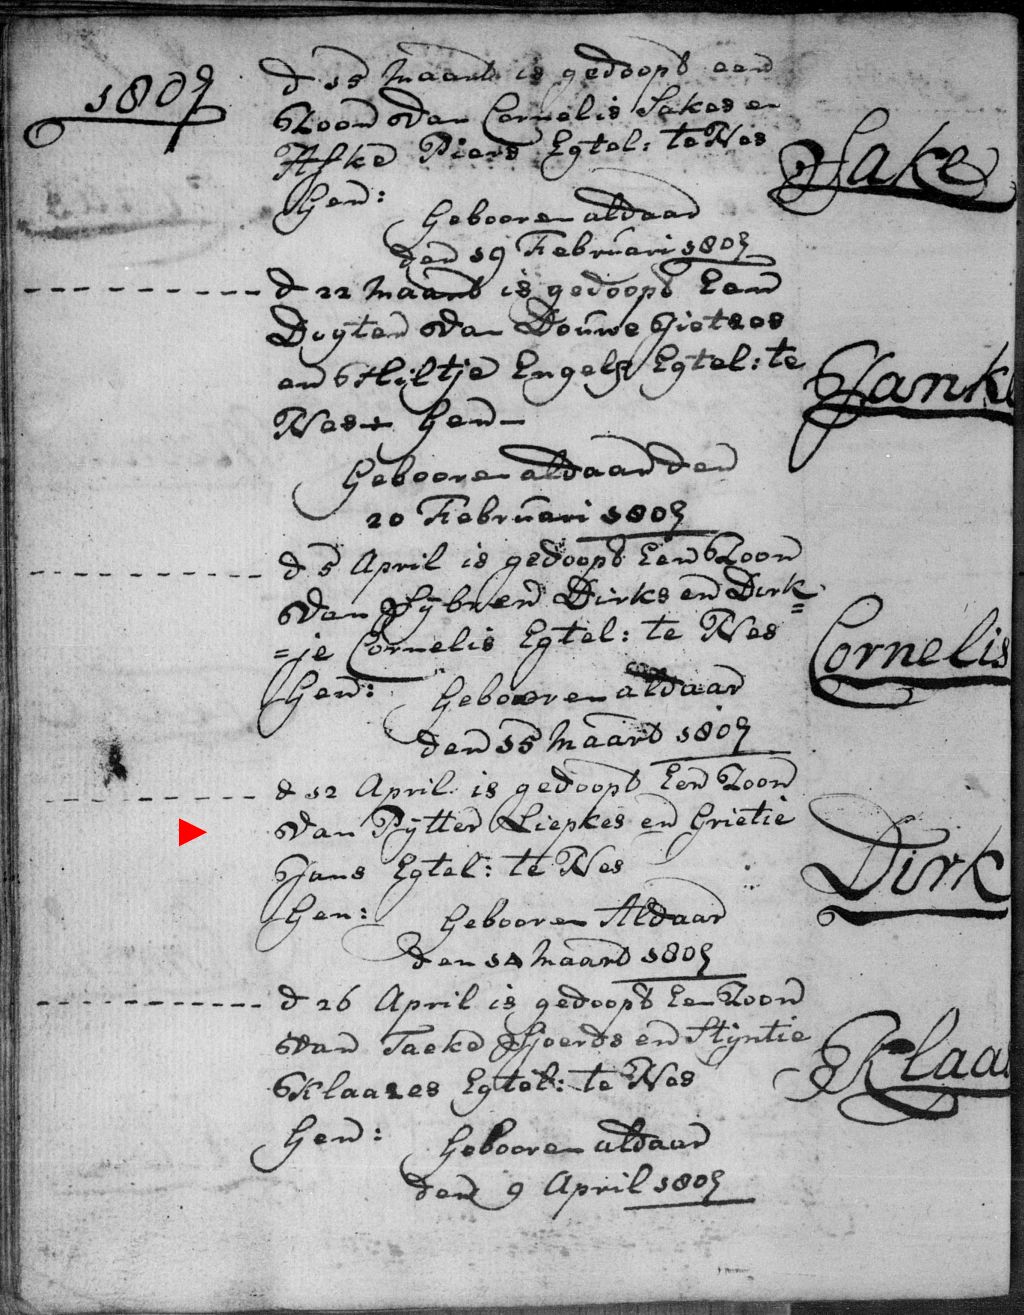 1807
d 15 Maart is gedoopt een
Zoon van Cornelis Sakes en
Afke Piers Egtel: te Nes
Gen:
Sake
Gebooren aldaar
den 19 Februari 1807
d 22 Maart is gedoopt Een
Dogter van Douwe Jietses
en Hijltje Engels Egtel: te
Nes Gen
Janke
Gebooren aldaar den
20 Februari 1807
d 5 April is gedoopt Een Zoon
van Sybren Dirks en Dirk=
=je Cornelis Egtel: te Nes
Gen:
Cornelis
Gebooren aldaar
den 15 Maart 1807
d 12 April is gedoopt Een Zoon
van Pytter Liepkes en Grietie
Jans Egtel: te Nes
Gen:
Dirk
Gebooren Aldaar
den 14 Maart 1807
d 26 April is gedoopt Een Zoon
van Taeke Sjoerds en Stijntie
Klaazes Egtel: te Nes
Gen:
Klaas
Gebooren aldaar
den 9 April 1807